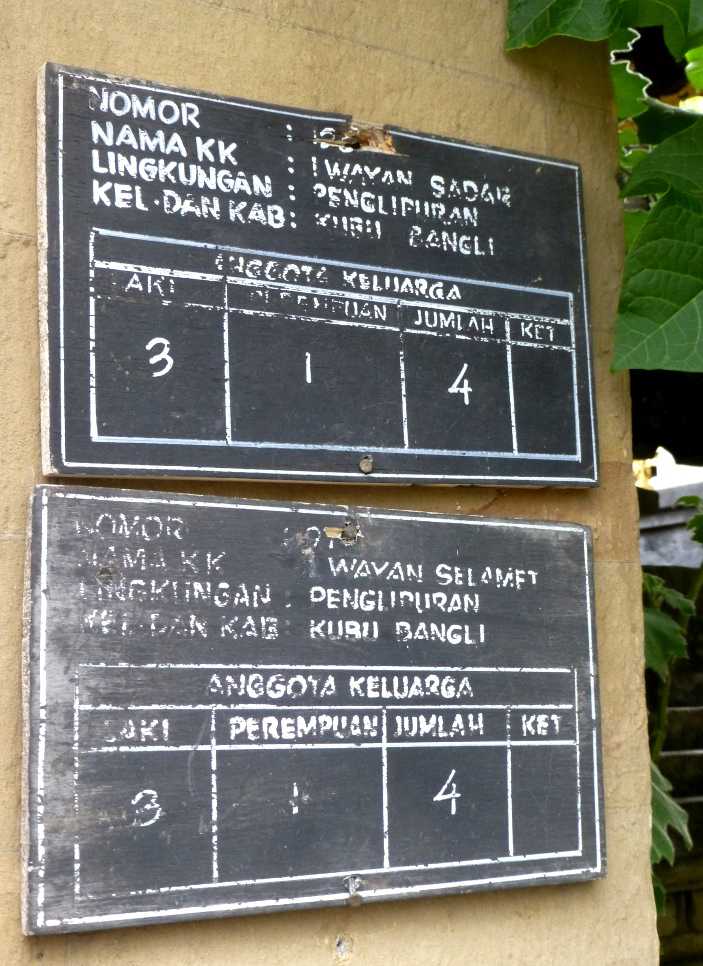 NOMOR :
NAMA KK : I WAYAN SADAR
LINGKUNGAN : PENGLIPURAN
KEL. DAN KAB : KUBU BANGLI
ANGGOTA KELUARGA
LAKI PEREMPUAN JUMLAH KET
3 1 4
NOMOR
NAMA KK I WAYAN SELAMET
LINGKUNGAN : PENGLIPURAN
KEL. DAN KAB : KUBU BANGLI
ANGGOTA KELUARGA
LAKI PEREMPUAN JUMLAH KET
3 1 4